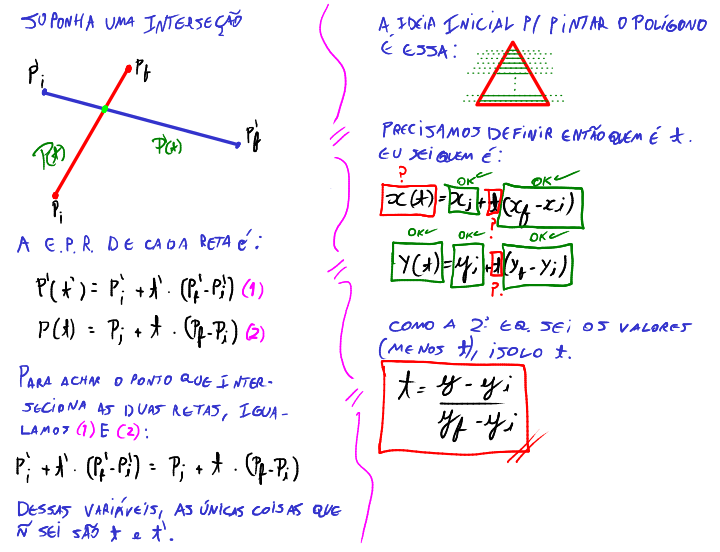 SUPONHA UMA INTERSEÇÃO
P'i
Pf
P(t)
P'(t)
P'f
Pi
A E.P.R. DE CADA RETA É:
P'(t') = P'i + t' · (P'f - P'i) (1)
P(t) = Pi + t · (Pf - Pi) (2)
PARA ACHAR O PONTO QUE INTER-
SECIONA AS DUAS RETAS, IGUA-
LAMOS (1) E (2):
P'i + t' · (P'f - P'i) = Pi + t · (Pf - Pi)
DESSAS VARIÁVEIS, AS ÚNICAS COISAS QUE
Ñ SEI SÃO t e t'.
A IDEIA INICIAL P/ PINTAR O POLÍGONO
É ESSA:
PRECISAMOS DEFINIR ENTÃO QUEM É t.
EU SEI QUEM É:
? OK✓ OK✓
x(t) = xi + t (xf - xi)
?
OK✓ OK✓ OK✓
y(t) = yi + t (yf - yi)
?
COMO A 2ª EQ. SEI OS VALORES
(MENOS t), ISOLO t.
t = y - yi
yf - yi